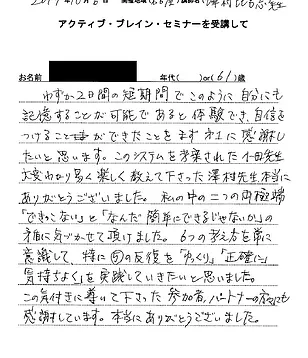 アクティブ・ブレイン・セミナーを受講して
お名前 年代( )or(61)歳
わずか2日間の短期間でこのように自分にも
記憶することが可能であると体験でき、自信を
つけることができたことをまず才1に感謝し
たいと思います。このシステムを考案された小田先生
大変わかり易く楽しく教えて下さった澤村先生本当に
ありがとうございました。私の中の二つの両極端
「できっこない」と「なんだ簡単にできるじゃないか」の
矛盾に気づかせて頂けました。6つの考え方を常に
意識して、特に⑤の反復を「ゆっくり」「正確に」
「気持よく」を実践していきたいと思いました。
この気付きに導いて下さった参加者、パートナーの方々にも
感謝しています。本当にありがとうございました。